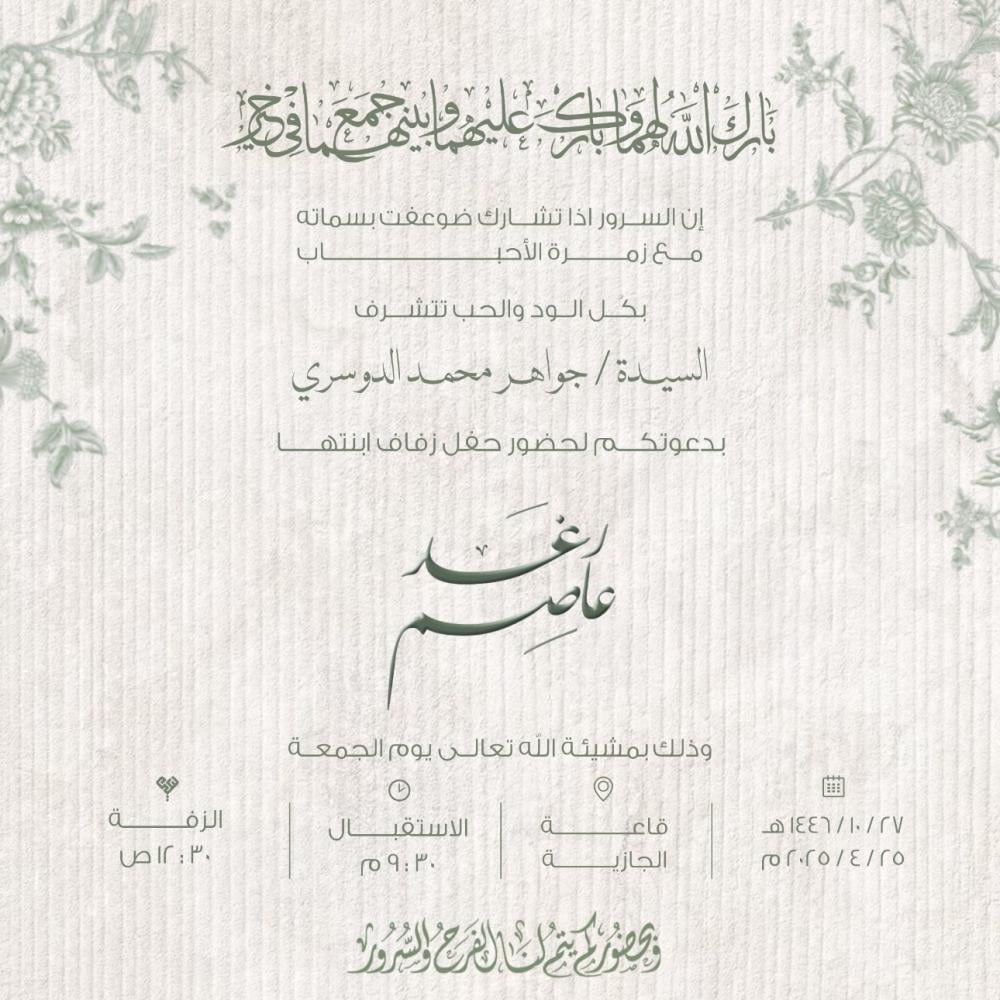 بارك الله لهما وبارك عليهما وجمع بينهما في خير
إن السرور اذا تشارك ضوعفت بسماته
مع زمرة الأحباب
بكل الود والحب تتشرف
السيدة / جواهر محمد الدوسري
بدعوتكم لحضور حفل زفاف ابنتها
رغد
عاصم
وذلك بمشيئة الله تعالى يوم الجمعة
١٤٤٦/١٠/٢٧ هـ
٢٠٢٥/٤/٢٥ م
قاعة
الجازية
الاستقبال
٩:٣٠ م
الزفة
١٢:٣٠ ص
وبحضوركم يتم لنا الفرح والسرور